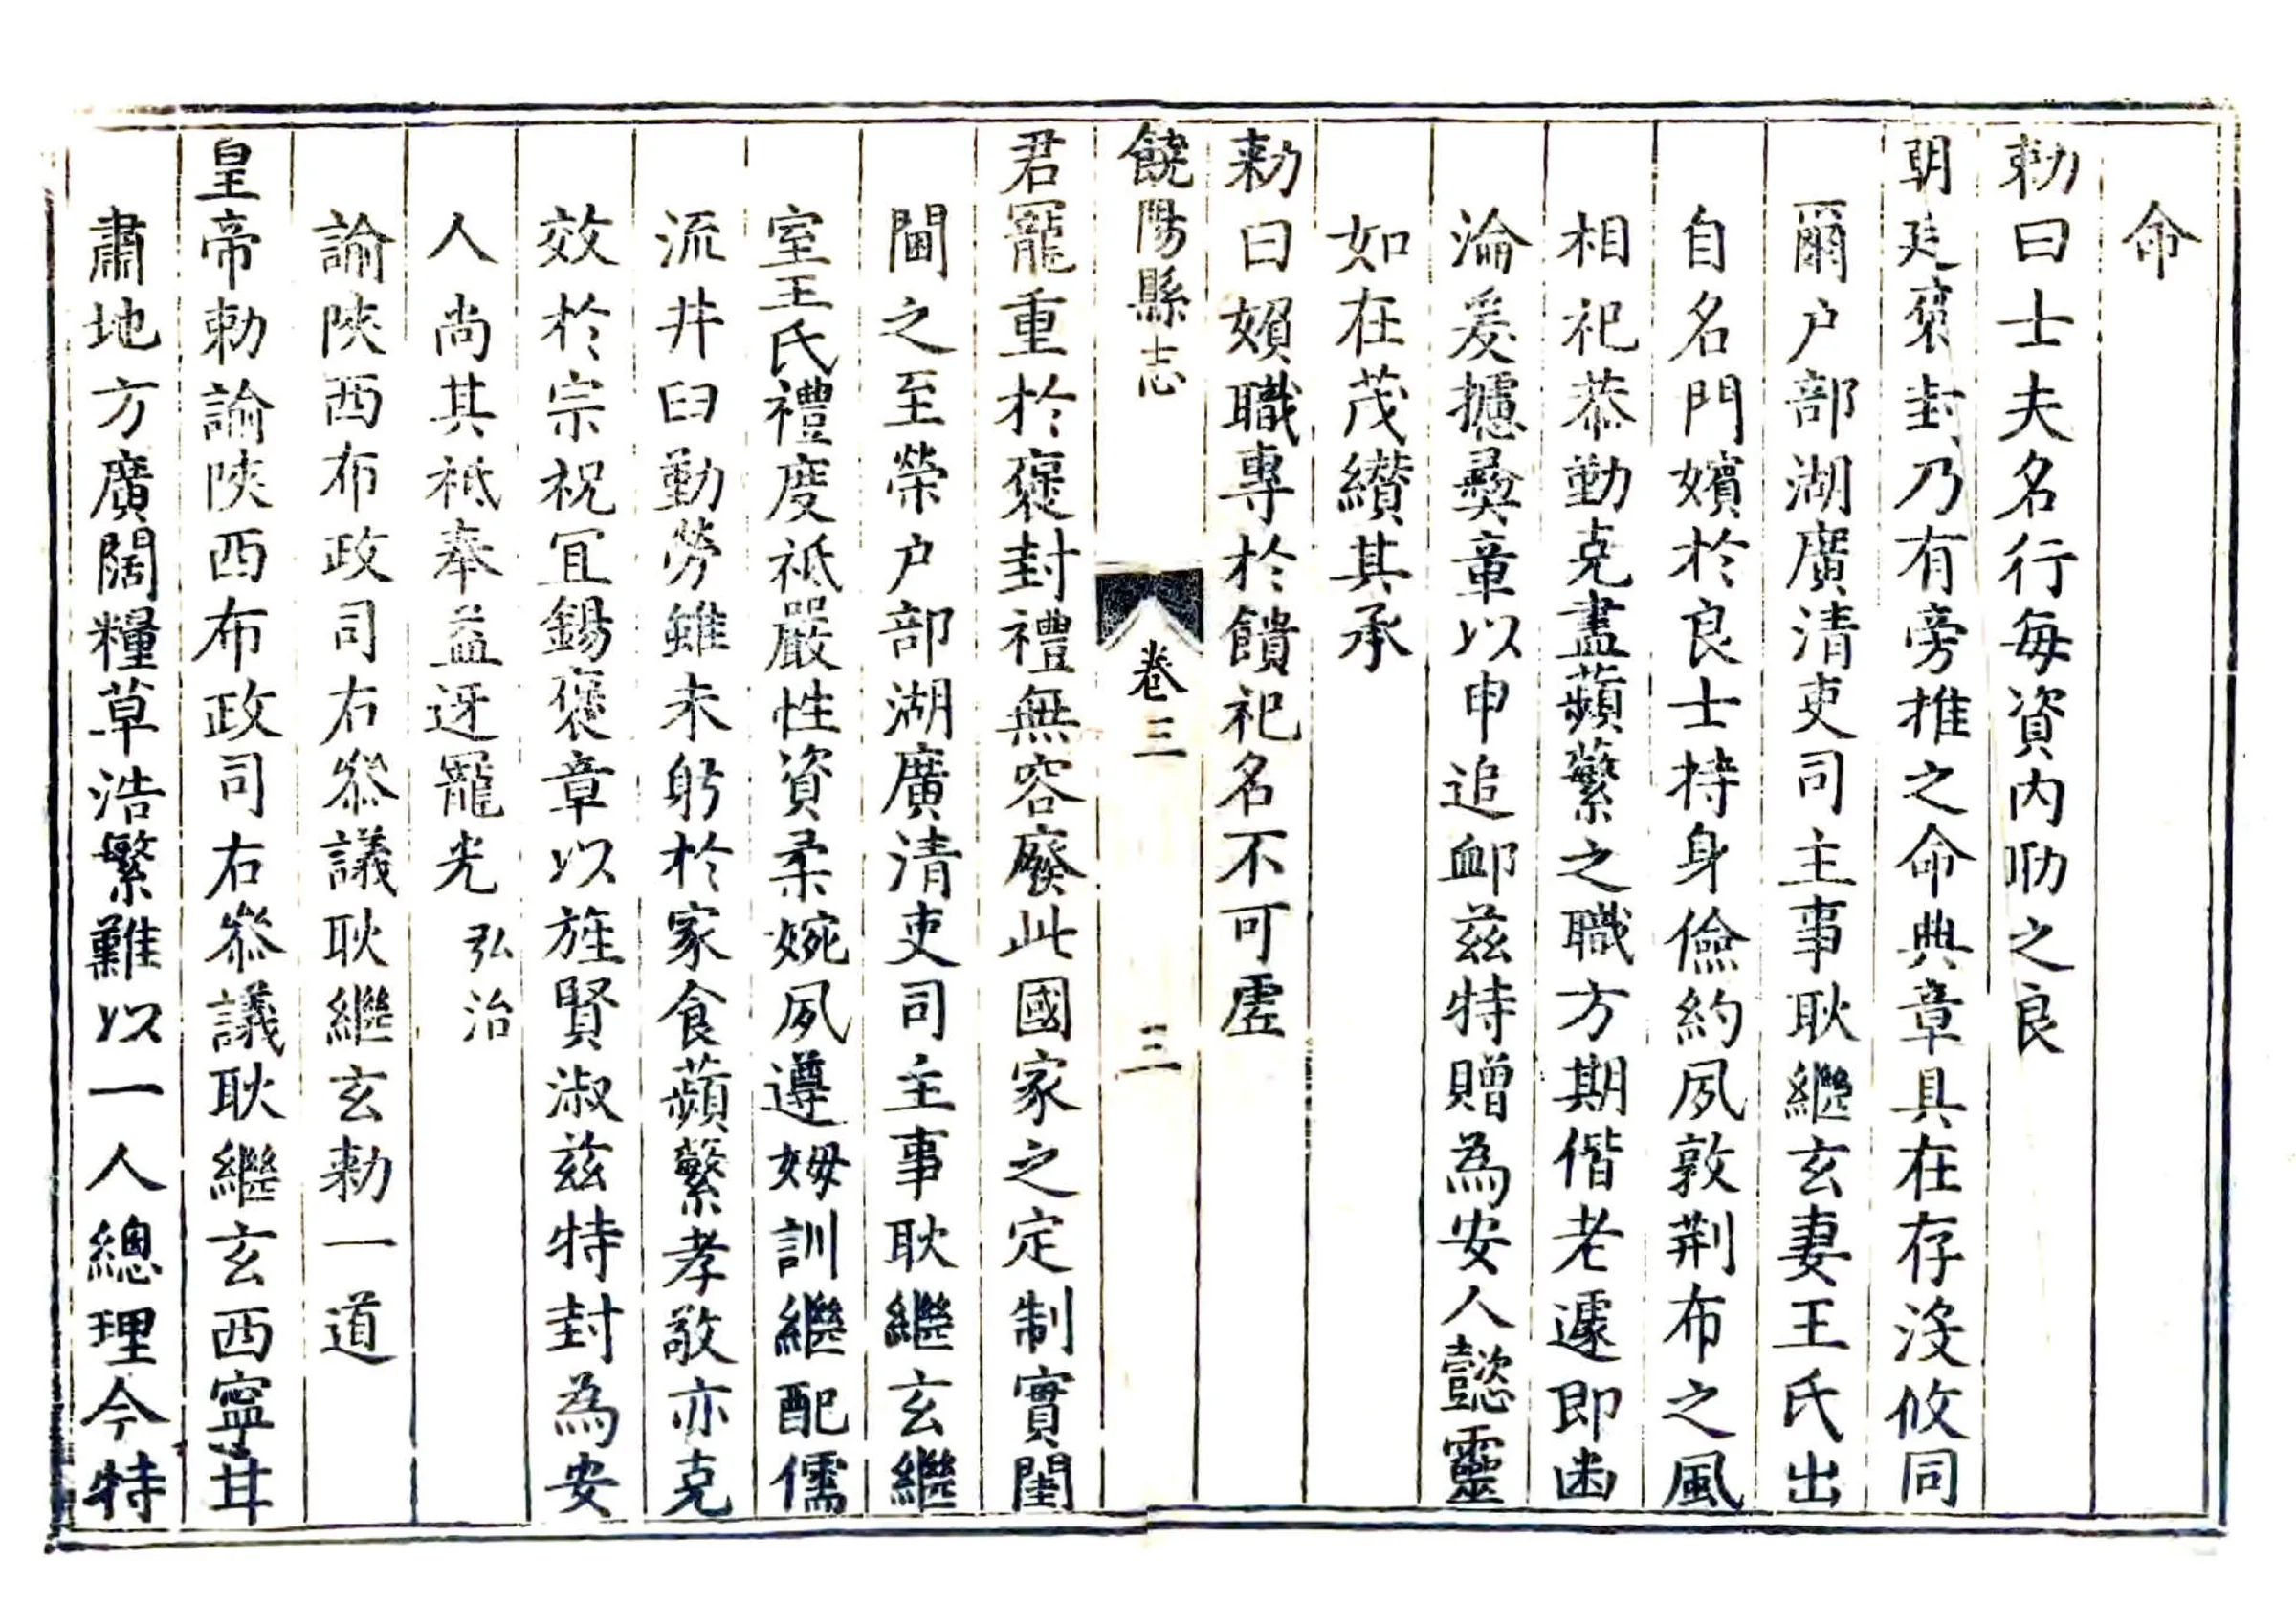 命
勅曰士夫名行每資内助之良
朝廷褒封乃有旁推之命典章具在存没攸同
爾户部湖廣清吏司主事耿繼玄妻王氏出
自名門嬪於良士持身儉約夙敦荆布之風
相祀恭勤克盡蘋蘩之職方期偕老遽即幽
淪爰攄彞章以申追䘏兹特贈為安人懿靈
如在茂纘其承
勅曰嬪職專於饋祀名不可虚
饒陽縣志
卷三
三
君寵重於褒封禮無容廢此國家之定制實閨
閫之至榮户部湖廣清吏司主事耿繼玄繼
室王氏禮度祗嚴性資柔婉夙遵姆訓繼配儒
流井臼勤勞雖未躬於家食蘋蘩孝敬亦克
效於宗祝宜錫褒章以旌賢淑兹特封為安
人尚其祗奉益迓寵光
弘治
諭陜西布政司右叅議耿繼玄勅一道
皇帝勅諭陜西布政司右叅議耿繼玄西寧甘
肅地方廣闊糧草浩繁難以一人總理今特